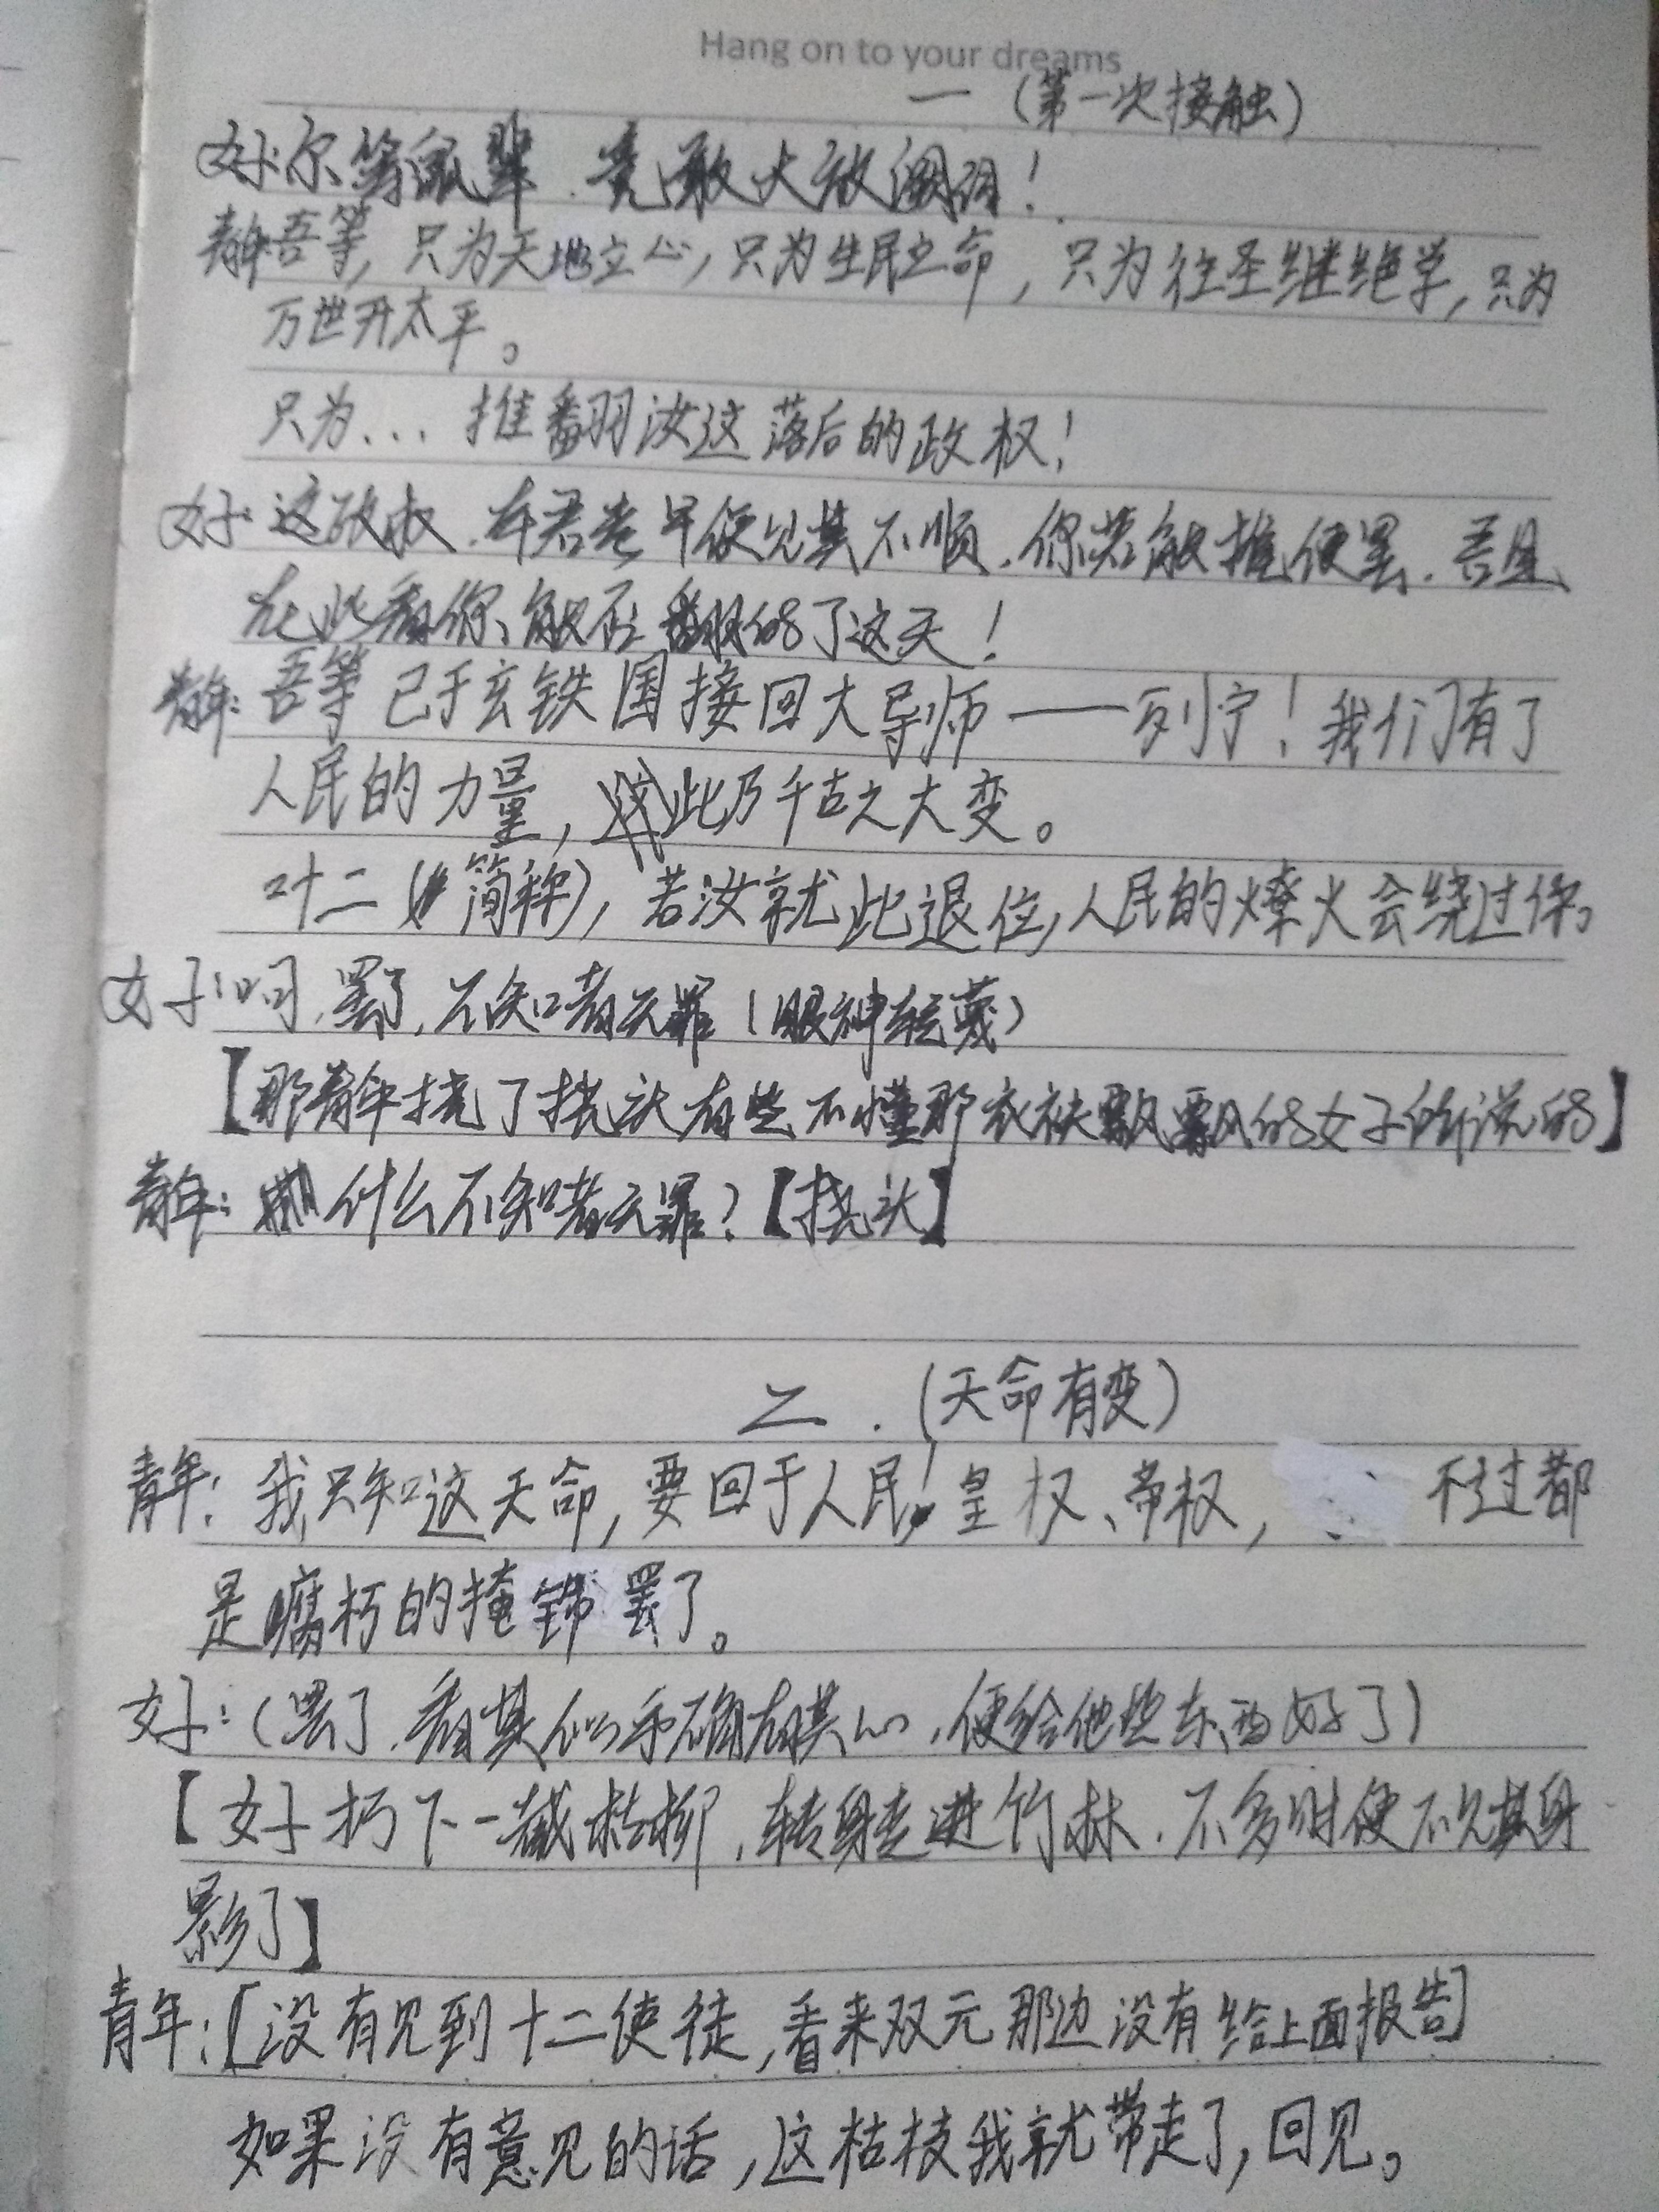 Hang on to your dreams
一 (第一次接触)
女子:尔等鼠辈.竟敢大放厥词!
青年:吾等,只为天地立心,只为生民立命,只为往圣继绝学,只为
万世开太平。
只为... 推翻汝这落后的政权!
女子:这政权.本君老早便见其不顺.你若能推便罢.吾且
在此看你能否翻的了这天!
青年:吾等已于玄铁国接回大导师——列宁!我们有了
人民的力量,此乃千古之大变。
叶二(简称),若汝就此退位,人民的燎火会绕过你。
女子:呵.罢了,不知者无罪(眼神轻蔑)
【那青年挠了挠头有些不懂那衣袂飘飘的女子所说的】
青年:什么不知者无罪?【挠头】
二.(天命有变)
青年:我只知这天命,要回于人民!皇权、帝权, 不过都
是腐朽的掩饰罢了。
女子:(罢了.看其似乎确有其心,便给他些东西好了)
【女子折下一截枯柳,转身走进竹林.不多时便不见其身
影了】
青年:[没有见到十二使徒,看来双元那边没有给上面报告]
如果没有意见的话,这枯枝我就带走了,回见。